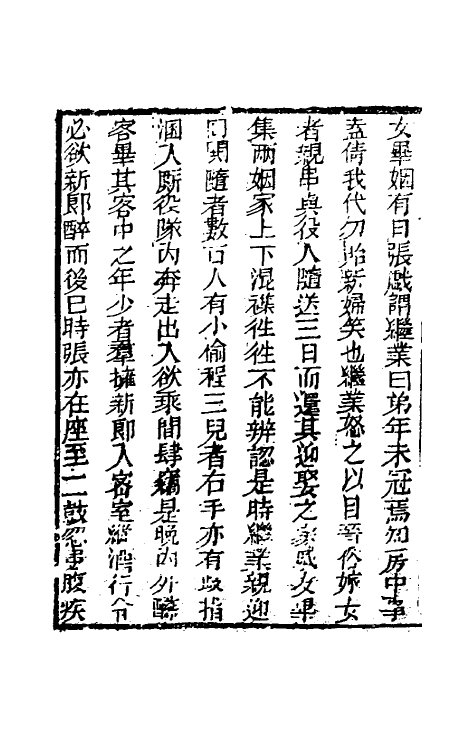 友畢姻有日張戲謂繼業曰弟年未冠焉知房中事
盍倩我代勿貽新婦笑也繼業怒之以目晋俗嫁女
者親串與伎人隨送三日而還其迎娶之家戚友畢
集兩姻家上下混襍徃徃不能辨認是時繼業親迎
門閧隨者數百人有小偷程三兒者右手亦有歧指
溷入厮役隊內奔走出入欲乘間肆竊是晚內外醼
客畢其客中之年少者羣擁新郎入密室縱酒行令
必欲新郎醉而後巳時張亦在座至二鼓忽患腹疾